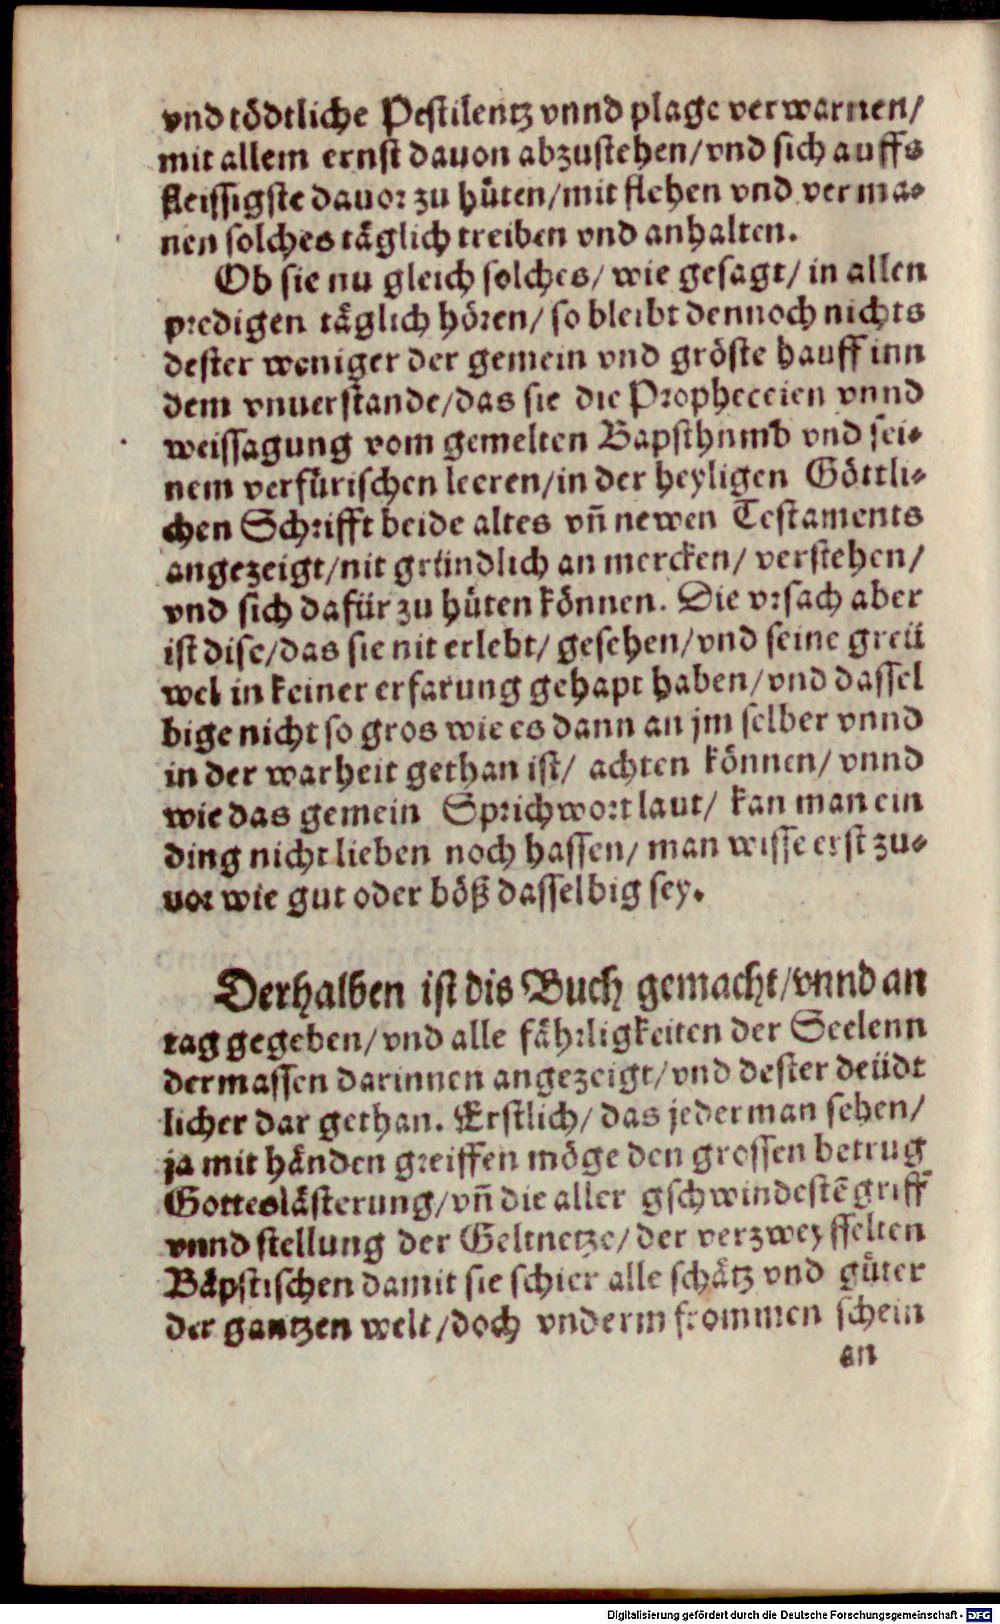 vnd tödtliche Pestilentz vnnd plage verwarnen/
mit allem ernst dauon abzustehen/vnd sich auffs
fleissigste dauor zu hüten/mit flehen vnd verma-
nen solches täglich treiben vnd anhalten.
Ob sie nu gleich solches/ wie gesagt/ in allen
predigen täglich hören/ so bleibt dennoch nichts
dester weniger der gemein vnd gröste hauff inn
dem vnuerstande/das sie die Propheceien vnnd
weissagung vom gemelten Bapsthumb vnd sei-
nem verfürischen leeren/in der heyligen Göttli-
chen Schrifft beide altes vn̄ newen Testaments
angezeigt/nit gründlich an mercken/ verstehen/
vnd sich dafür zu hüten können. Die vrsach aber
ist dise/das sie nit erlebt/ gesehen/vnd seine greü
wel in keiner erfarung gehapt haben/vnd dassel
bige nicht so gros wie es dann an jm selber vnnd
in der warheit gethan ist/ achten können/ vnnd
wie das gemein Sprichwort laut/ kan man ein
ding nicht lieben noch hassen/ man wisse erst zu-
uor wie gut oder böß dasselbig sey.
Derhalben ist dis Buch gemacht/vnnd an
tag gegeben/vnd alle fährligkeiten der Seelenn
dermassen darinnen angezeigt/vnd dester deüdt
licher dar gethan. Erstlich/ das jederman sehen/
ja mit händen greiffen möge den grossen betrug
Gotteslästerung/vn̄ die aller gschwindestē griff
vnnd stellung der Geltnetze/der verzweyffelten
Bäpstischen damit sie schier alle schätz vnd güter
der gantzen welt/doch vnderm frommen schein
an
Digitalisierung gefördert durch die Deutsche Forschungsgemeinschaft - DFG